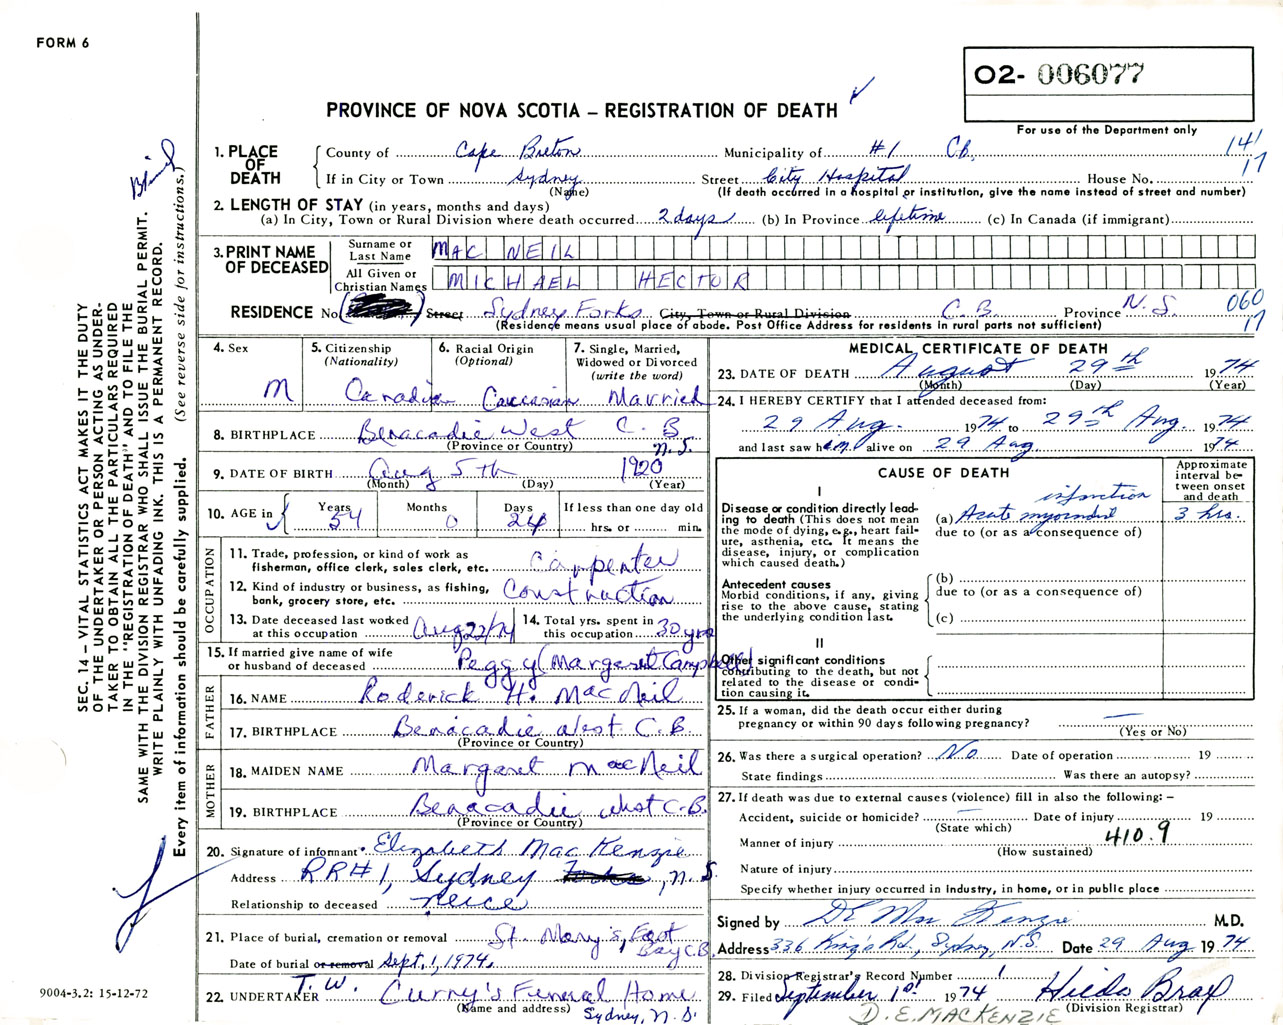 FORM 6
O2- 006077
PROVINCE OF NOVA SCOTIA – REGISTRATION OF DEATH
For use of the Department only
1. PLACE OF DEATH
County of Cape Breton Municipality of #1 C.B. 141
If in City or Town Sydney Street City Hospital House No. 17
(Name) (If death occurred in a hospital or institution, give the name instead of street and number)
2. LENGTH OF STAY (in years, months and days)
(a) In City, Town or Rural Division where death occurred 2 days (b) In Province lifetime (c) In Canada (if immigrant)
3. PRINT NAME OF DECEASED
Surname or Last Name MAC NEIL
All Given or Christian Names MICHAEL HECTOR
RESIDENCE No. Street Sydney Forks City, Town or Rural Division C.B Province N.S. 060
(Residence means usual place of abode. Post Office Address for residents in rural parts not sufficient) 17
4. Sex
M
5. Citizenship
(Nationality)
Canadian
6. Racial Origin
(Optional)
Caucasian
7. Single, Married, Widowed or Divorced
(write the word)
Married
8. BIRTHPLACE Benacadie West C.B
(Province or Country) N.S.
9. DATE OF BIRTH Aug 5th 1920
(Month) (Day) (Year)
10. AGE in Years 54 Months 0 Days 24 If less than one day old hrs. or min.
OCCUPATION
11. Trade, profession, or kind of work as fisherman, office clerk, sales clerk, etc. Carpenter
12. Kind of industry or business, as fishing, bank, grocery store, etc. Construction
13. Date deceased last worked at this occupation Aug 22/74
14. Total yrs. spent in this occupation 30 yrs
15. If married give name of wife or husband of deceased Peggy (Margaret Campbell)
FATHER
16. NAME Roderick H. MacNeil
17. BIRTHPLACE Benacadie West C.B
(Province or Country)
MOTHER
18. MAIDEN NAME Margaret MacNeil
19. BIRTHPLACE Benacadie West C.B.
(Province or Country)
20. Signature of informant Elizabeth MacKenzie
Address RR#1, Sydney, N.S.
Relationship to deceased neice
21. Place of burial, cremation or removal St. Mary's, East Bay C.B.
Date of burial or removal Sept. 1, 1974.
22. UNDERTAKER T.W. Curry's Funeral Home
(Name and address) Sydney, N.S.
MEDICAL CERTIFICATE OF DEATH
23. DATE OF DEATH August 29th 1974
(Month) (Day) (Year)
24. I HEREBY CERTIFY that I attended deceased from:
29 Aug. 1974 to 29th Aug. 1974
and last saw him alive on 29 Aug 1974
CAUSE OF DEATH
Approximate interval between onset and death
I
Disease or condition directly leading to death (This does not mean the mode of dying, e.g., heart failure, asthenia, etc. It means the disease, injury, or complication which caused death.)
(a) Acute myocardial infarction 3 hrs.
due to (or as a consequence of)
Antecedent causes
Morbid conditions, if any, giving rise to the above cause, stating the underlying condition last.
(b)
due to (or as a consequence of)
(c)
II
Other significant conditions contributing to the death, but not related to the disease or condition causing it.
25. If a woman, did the death occur either during pregnancy or within 90 days following pregnancy? —
(Yes or No)
26. Was there a surgical operation? No Date of operation 19
State findings Was there an autopsy?
27. If death was due to external causes (violence) fill in also the following: –
Accident, suicide or homicide? — Date of injury 19
(State which)
Manner of injury 410.9
(How sustained)
Nature of injury
Specify whether injury occurred in Industry, in home, or in public place
Signed by D E MacKenzie M.D.
Address 336 King's Rd., Sydney, N.S. Date 29 Aug 1974
28. Division Registrar's Record Number 1
29. Filed September 1st 1974 Hilda Bray
(Division Registrar)
D.E. MACKENZIE
SEC. 14 – VITAL STATISTICS ACT MAKES IT THE DUTY
OF THE UNDERTAKER OR PERSON ACTING AS UNDER-
TAKER TO OBTAIN ALL THE PARTICULARS REQUIRED
IN THE "REGISTRATION OF DEATH" AND TO FILE THE
SAME WITH THE DIVISION REGISTRAR WHO SHALL ISSUE THE BURIAL PERMIT.
WRITE PLAINLY WITH UNFADING INK. THIS IS A PERMANENT RECORD.
Every item of information should be carefully supplied. (See reverse side for instructions.)
9004-3.2: 15-12-72